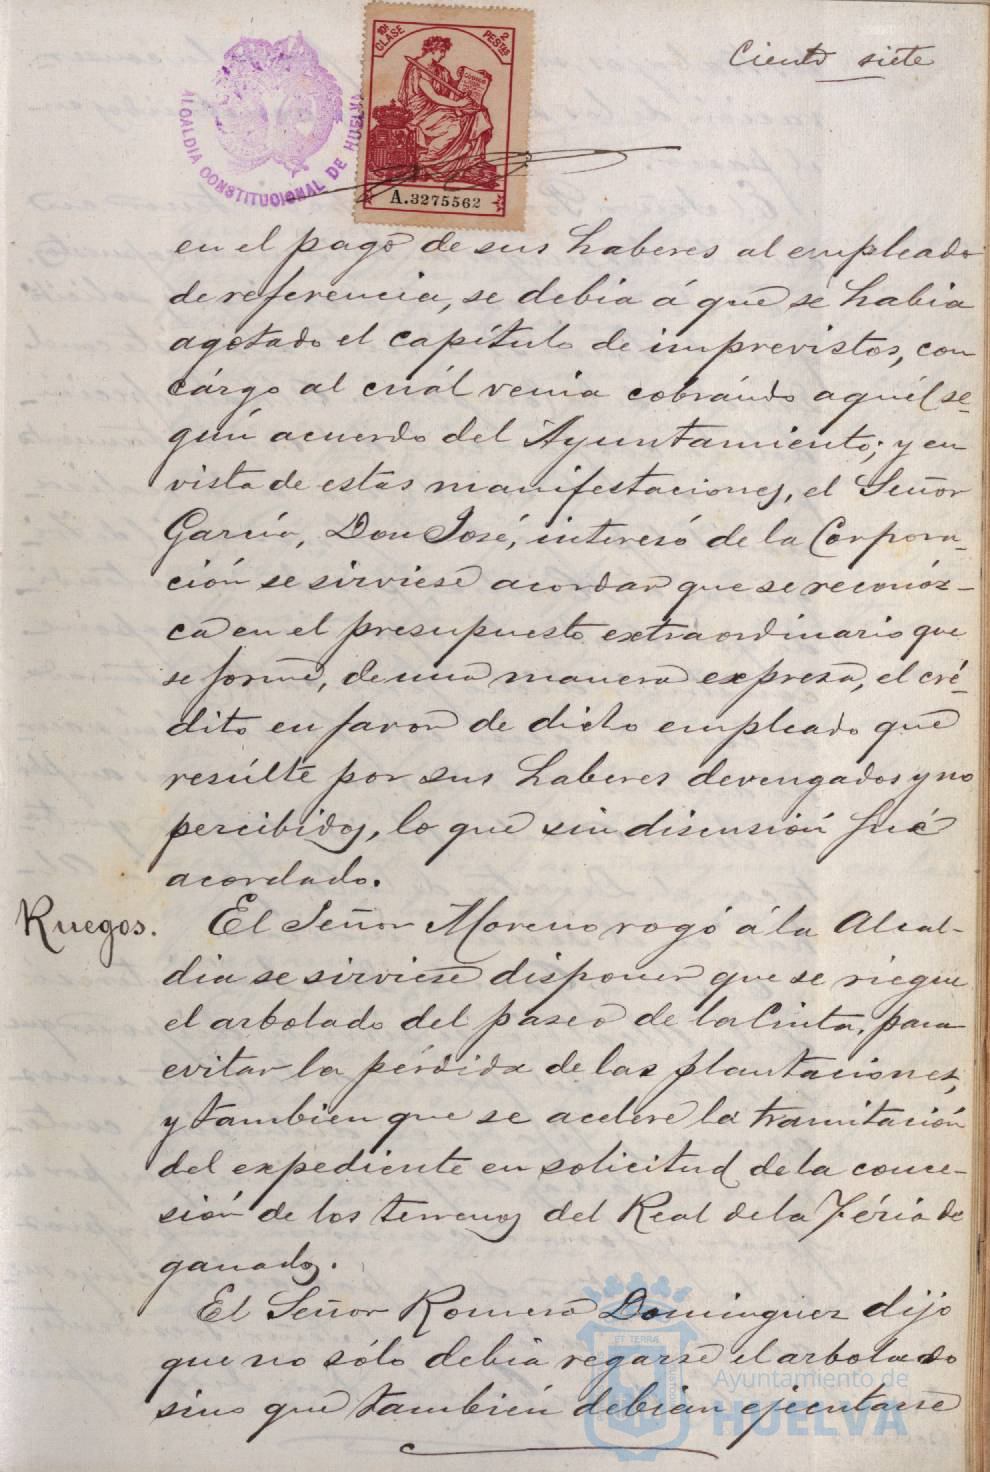 Ciento siete
10ª CLASE
2 PESTAS
ALCALDIA CONSTITUCIONAL DE HUELVA
A.3275562
en el pago de sus haberes al empleado
de referencia, se debia á que se habia
agotado el capítulo de imprevistos, con
cárgo al cuál venia cobrándo aquél se-
gún acuerdo del Ayuntamiento; y en
vista de estas manifestaciones, el Señor
García, Don José, interesó de la Corpora-
ción se sirviese acordar que se reconóz-
ca en el presupuesto extraordinario que
se forme, de una manera expresa, el cré-
dito en favor de dicho empleado que
resúlte por sus haberes devengados y no
percibidos, lo que sin discusión fué
acordado.
Ruegos. El Señor Moreno rogó á la Alcal-
dia se sirviese disponer que se riegue
el arbolado del paseo de la Cinta, para
evitar la pérdida de las plantaciones,
y tambien que se acelere la tramitación
del expediente en solicitud de la conce-
sión de los terrenos del Real de la Féria de
ganados.
El Señor Romero Dominguez dijo
que no sólo debia regarse el arbolado
sino que también debian ejecutarse
ET TERRÆ
Ayuntamiento de
HUELVA